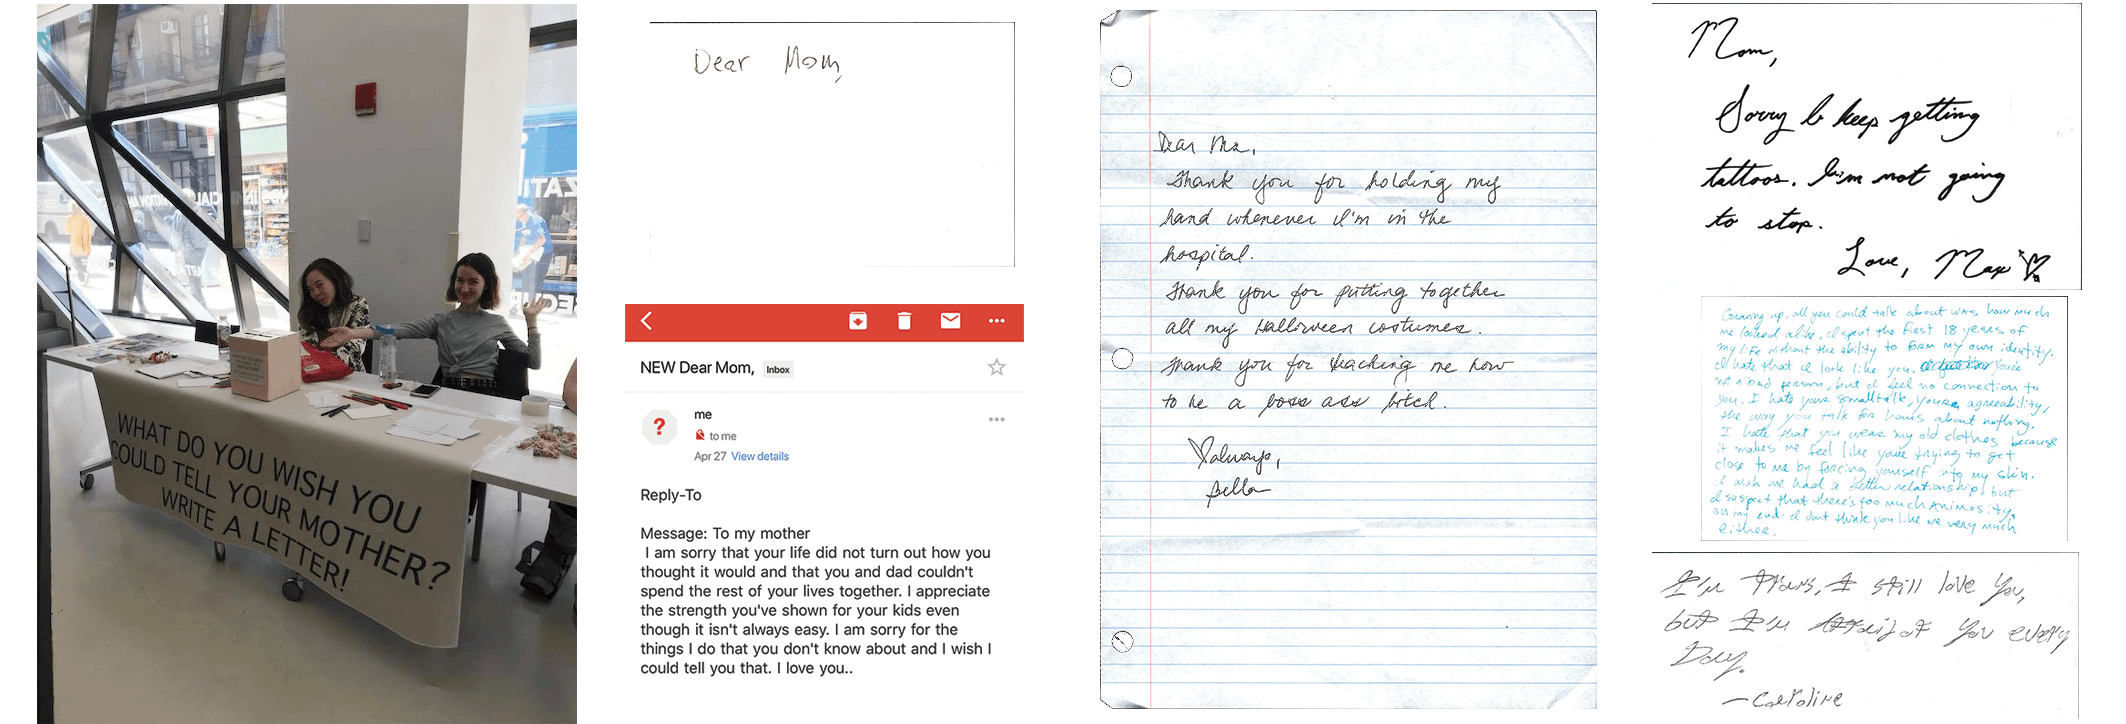 WHAT DO YOU WISH YOU
COULD TELL YOUR MOTHER?
WRITE A LETTER!
Dear Mom,
NEW Dear Mom, Inbox
me
to me
Apr 27 View details
Reply-To
Message: To my mother
I am sorry that your life did not turn out how you
thought it would and that you and dad couldn't
spend the rest of your lives together. I appreciate
the strength you've shown for your kids even
though it isn't always easy. I am sorry for the
things I do that you don't know about and I wish I
could tell you that. I love you..
Dear Ma,
Thank you for holding my
hand whenever I'm in the
hospital.
Thank you for putting together
all my Halloween costumes.
Thank you for teaching me how
to be a boss ass bitch.
always,
Bella
Mom,
Sorry I keep getting
tattoos. I'm not going
to stop.
Love, Max
Growing up, all you could talk about was how much
we looked alike. I spent the first 18 years of
my life without the ability to form my own identity.
I hate that I look like you. You're
not a bad person, but I feel no connection to
you. I hate your smalltalk, your agreeability,
the way you talk for hours about nothing.
I hate that you wear my old clothes because
it makes me feel like you're trying to get
close to me by forcing yourself into my skin.
I wish we had a better relationship, but
I suspect that there's too much animosity,
on my end. I don't think you like me very much
either.
I'm Trans, I still love You,
but I'm afraid of You every
Day.
—Caroline